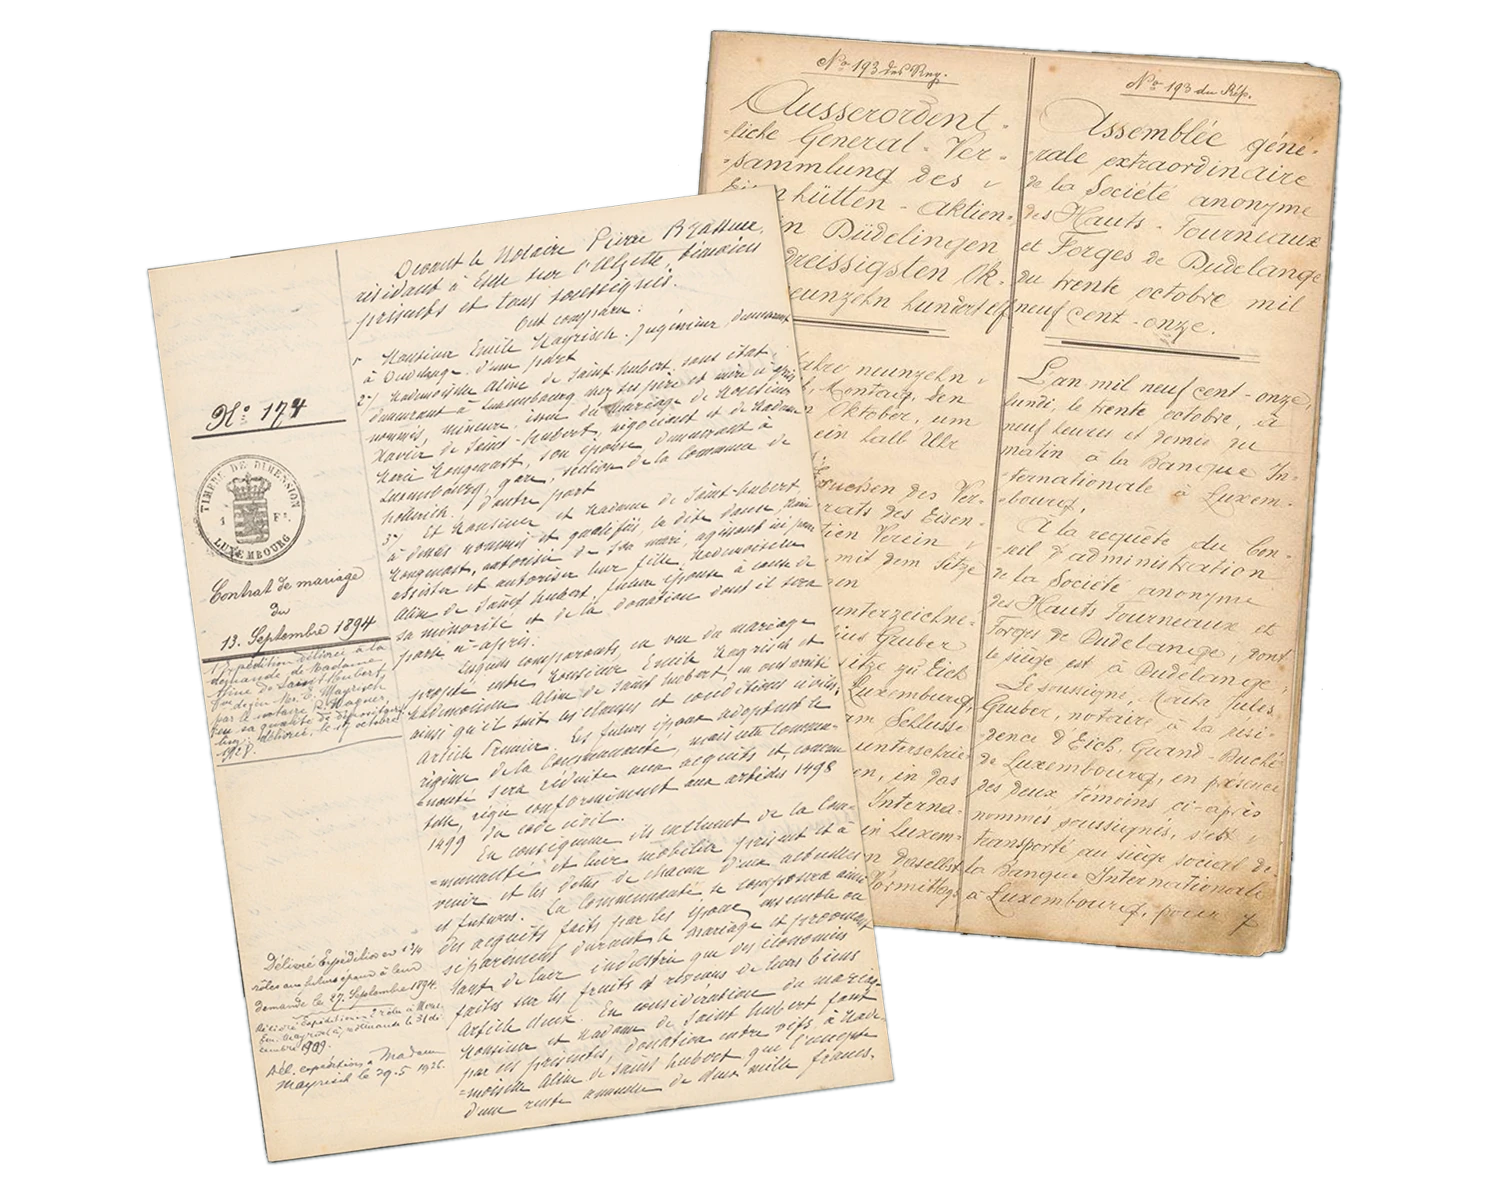 Nº 174
TIMBRE DE DIMENSION
1 Fr.
LUXEMBOURG
Contrat de mariage
du
13. Septembre 1894
Expédition délivrée à la
demande de Madame
Aline de Saint-Hubert,
Mayrisch
par le notaire
sa qualité de
délivrée, le 19 octobre
Délivré Expédition en
rôles aux futurs époux à leur
demande le 27. Septembre 1894.
Délivré expédition 2 rôles à Mons.
Em. Mayrisch, à sa demande le 31 dé-
cembre 1909.
Dél. expédition à Madame
Mayrisch le 29.5 1926.
Devant le Notaire Pierre Brasseur,
résidant à Esch sur l'Alzette, témoins
présents et tous soussignés.
Ont comparu:
1º Monsieur Emile Mayrisch, Ingénieur, demeurant
à Dudelange, d'une part
2º/ Mademoiselle Aline de Saint-Hubert, sans état,
demeurant à Luxembourg chez ses père et mère ci-après
nommés, mineure, issue du mariage de Monsieur
Xavier de Saint-Hubert, négociant et de Madame
Marie Mongenast, son épouse demeurant à
Luxembourg, gare, section de la Commune de
Hollerich, d'autre part
3º/ Et Monsieur et Madame de Saint-Hubert,
ci-dessus nommés et qualifiés, la dite dame, Marie
Mongenast, autorisée de son mari, agissant ici pour
assister et autoriser leur fille, Mademoiselle
Aline de Saint Hubert, future épouse à cause de
sa minorité et de la donation dont il sera
parlé ci-après.
Lesquels comparants, en vue du mariage
projeté entre Monsieur Emile Mayrisch et
Mademoiselle Aline de Saint Hubert, en ont arrêté
ainsi qu'il suit les clauses et conditions civiles:
Article Premier. Les futurs époux adoptent le
régime de la Communauté, mais cette commu-
=nauté sera réduite aux acquêts et, comme
telle, régie conformément aux articles 1498
1499 du code civil.
En conséquence ils excluent de la Com-
=munauté et leur mobilier présent et à
venir et les dettes de chacun d'eux actuelles
et futures. La Communauté se composera ainsi
des acquêts faits par les époux ensemble ou
séparément durant le mariage et provenant
tant de leur industrie que des économies
faites sur les fruits et revenus de leurs biens
Article deux. En considération du mariage
Monsieur et Madame de Saint Hubert font
par ces présentes, donation entre vifs, à Made-
=moiselle Aline de Saint Hubert qui l'accepte
d'une rente annuelle de deux mille francs.
Nº 193 des Reg.
Ausserordent-
=liche General-Ver-
=sammlung des
Eisenhütten-Aktien-
in Düdelingen
dreissigsten Ok-
neunzehn hundert elf
Jahre neunzehn
Montag, den
Oktober, um
ein halb Uhr
Ersuchen des Ver-
rats des Eisen-
tien Verein
mit dem Sitze
en
unterzeichne-
ius Gruber
sitze zu Eich
Luxemburg,
am Schluss
unterschrie-
en, in das
Interna-
in Luxem-
n daselbst
Vormittags
Nº 193 du Rép.
Assemblée géné-
-rale extraordinaire
de la Société anonyme
des Hauts-Fourneaux
et Forges de Dudelange
du trente octobre mil
neuf cent-onze.
L'an mil neuf cent-onze,
lundi, le trente octobre, à
neuf heures et demie du
matin à la Banque In-
-ternationale à Luxem-
-bourg,
A la requête du Con-
-seil d'administration
de la Société anonyme
des Hauts Fourneaux et
Forges de Dudelange, dont
le siège est à Dudelange;
Le soussigné, Jules
Gruber, notaire à la rési-
dence d'Eich, Grand-Duché
de Luxembourg, en présence
des deux témoins ci-après
nommés, soussignés, s'est
transporté au siège social de
la Banque Internationale
à Luxembourg, pour y